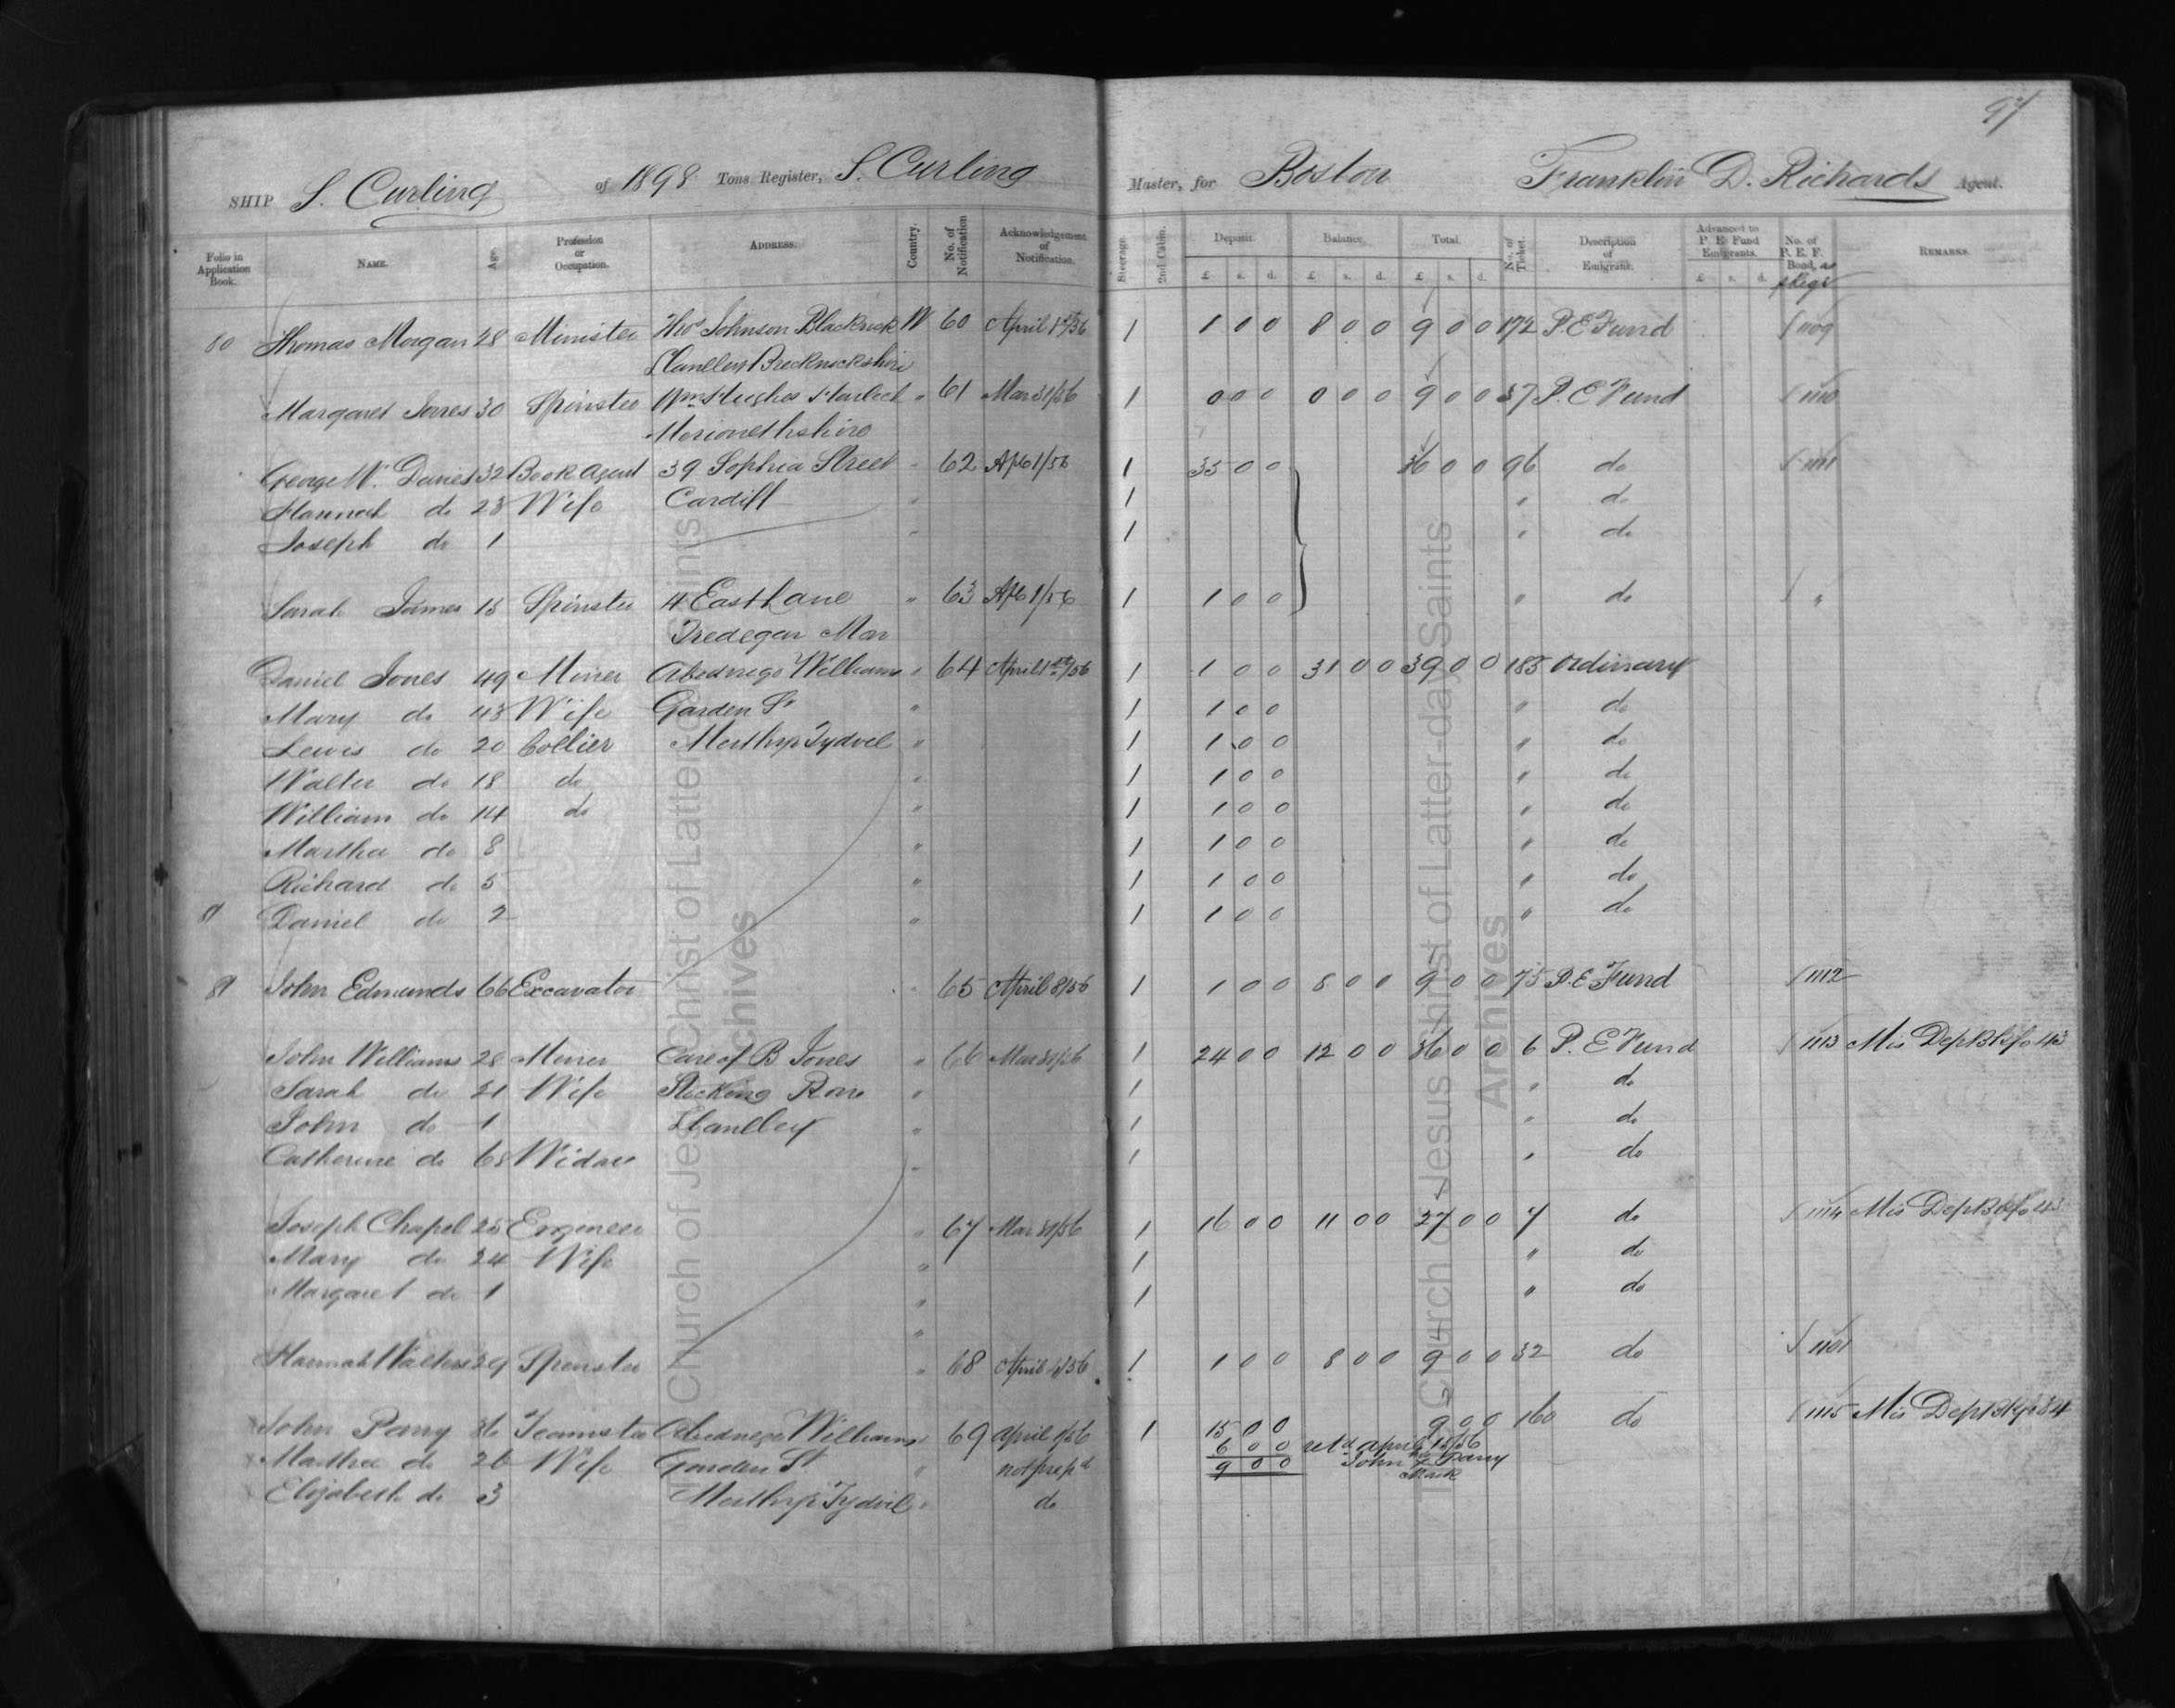 97
SHIP S. Curling of 1898 Tons Register, S. Curling Master, for Boston Franklin D. Richards Agent.
Folio in Application Book. NAME. Age. Profession or Occupation. ADDRESS. Country. No. of Notification Acknowledgement of Notification. Steerage 2nd Cabin. Deposit. Balance. Total. No. of Ticket. Description of Emigrant. Advanced to P. E. Fund Emigrants. No. of P. E. F. Bond, REMARKS.
£ s. d. £ s. d. £ s. d. £ s. d.
80 Thomas Morgan 28 Minister Thos Johnson Blackrock W 60 April 1st/56 1 1 0 0 8 0 0 9 0 0 172 P. E Fund 1109
Llanelley Brecknockshire
Margaret Jones 30 Spinster Wm Hughes Harlech " 61 Mar 31/56 1 0 0 0 0 0 0 9 0 0 37 P. E Fund 1110
Merionethshire
George W. Davies 32 Book Agent 39 Sophia Street " 62 Apl 1/56 1 35 0 0 36 0 0 96 do 1111
Hannah do 28 Wife Cardiff " 1 " do
Joseph do 1 " 1 " do
Sarah James 18 Spinster 4 East Lane " 63 Apl 1/56 1 1 0 0 " do "
Tredegar Mon
Daniel Jones 49 Miner Abednego Williams " 64 April 1st/56 1 1 0 0 31 0 0 39 0 0 185 Ordinary
Mary do 43 Wife Garden St " 1 1 0 0 " do
Lewis do 20 Collier Merthyr Tydvil " 1 1 0 0 " do
Walter do 18 do " 1 1 0 0 " do
William do 14 do " 1 1 0 0 " do
Martha do 8 " 1 1 0 0 " do
Richard do 5 " 1 1 0 0 " do
81 Daniel do 2 " 1 1 0 0 " do
81 John Edmunds 66 Excavator " 65 April 8/56 1 1 0 0 8 0 0 9 0 0 75 P. E Fund 1112
John Williams 28 Miner Care of B Jones " 66 Mar 31/56 1 24 0 0 12 0 0 36 0 0 6 P. E Fund 1113 Mis Dept Bk fo 43
Sarah do 21 Wife Stocking Row " 1 " do
John do 1 Llanelley " 1 " do
Catherine do 68 Widow " 1 " do
Joseph Chapel 25 Engineer " 67 Mar 31/56 1 16 0 0 11 0 0 27 0 0 7 do 1114 Mis Dept Bk fo 43
Mary do 24 Wife " 1 " do
Margaret do 1 " 1 " do
"
Hannah Walters 29 Spinster " 68 April 4/56 1 1 0 0 8 0 0 9 0 0 32 do 1101
John Parry 36 Teamster Abednego Williams " 69 April 1/56 1 15 0 0 9 0 0 160 do 1115 Mis Dept Bk fo 84
Martha do 26 Wife Garden St " not prepd 6 0 0 retd April 18/56
9 0 0 John X Parry
Mark
Elizabeth do 3 Merthyr Tydvil " do
The Church of Jesus Christ of Latter-day Saints
Archives
The Church of Jesus Christ of Latter-day Saints
Archives